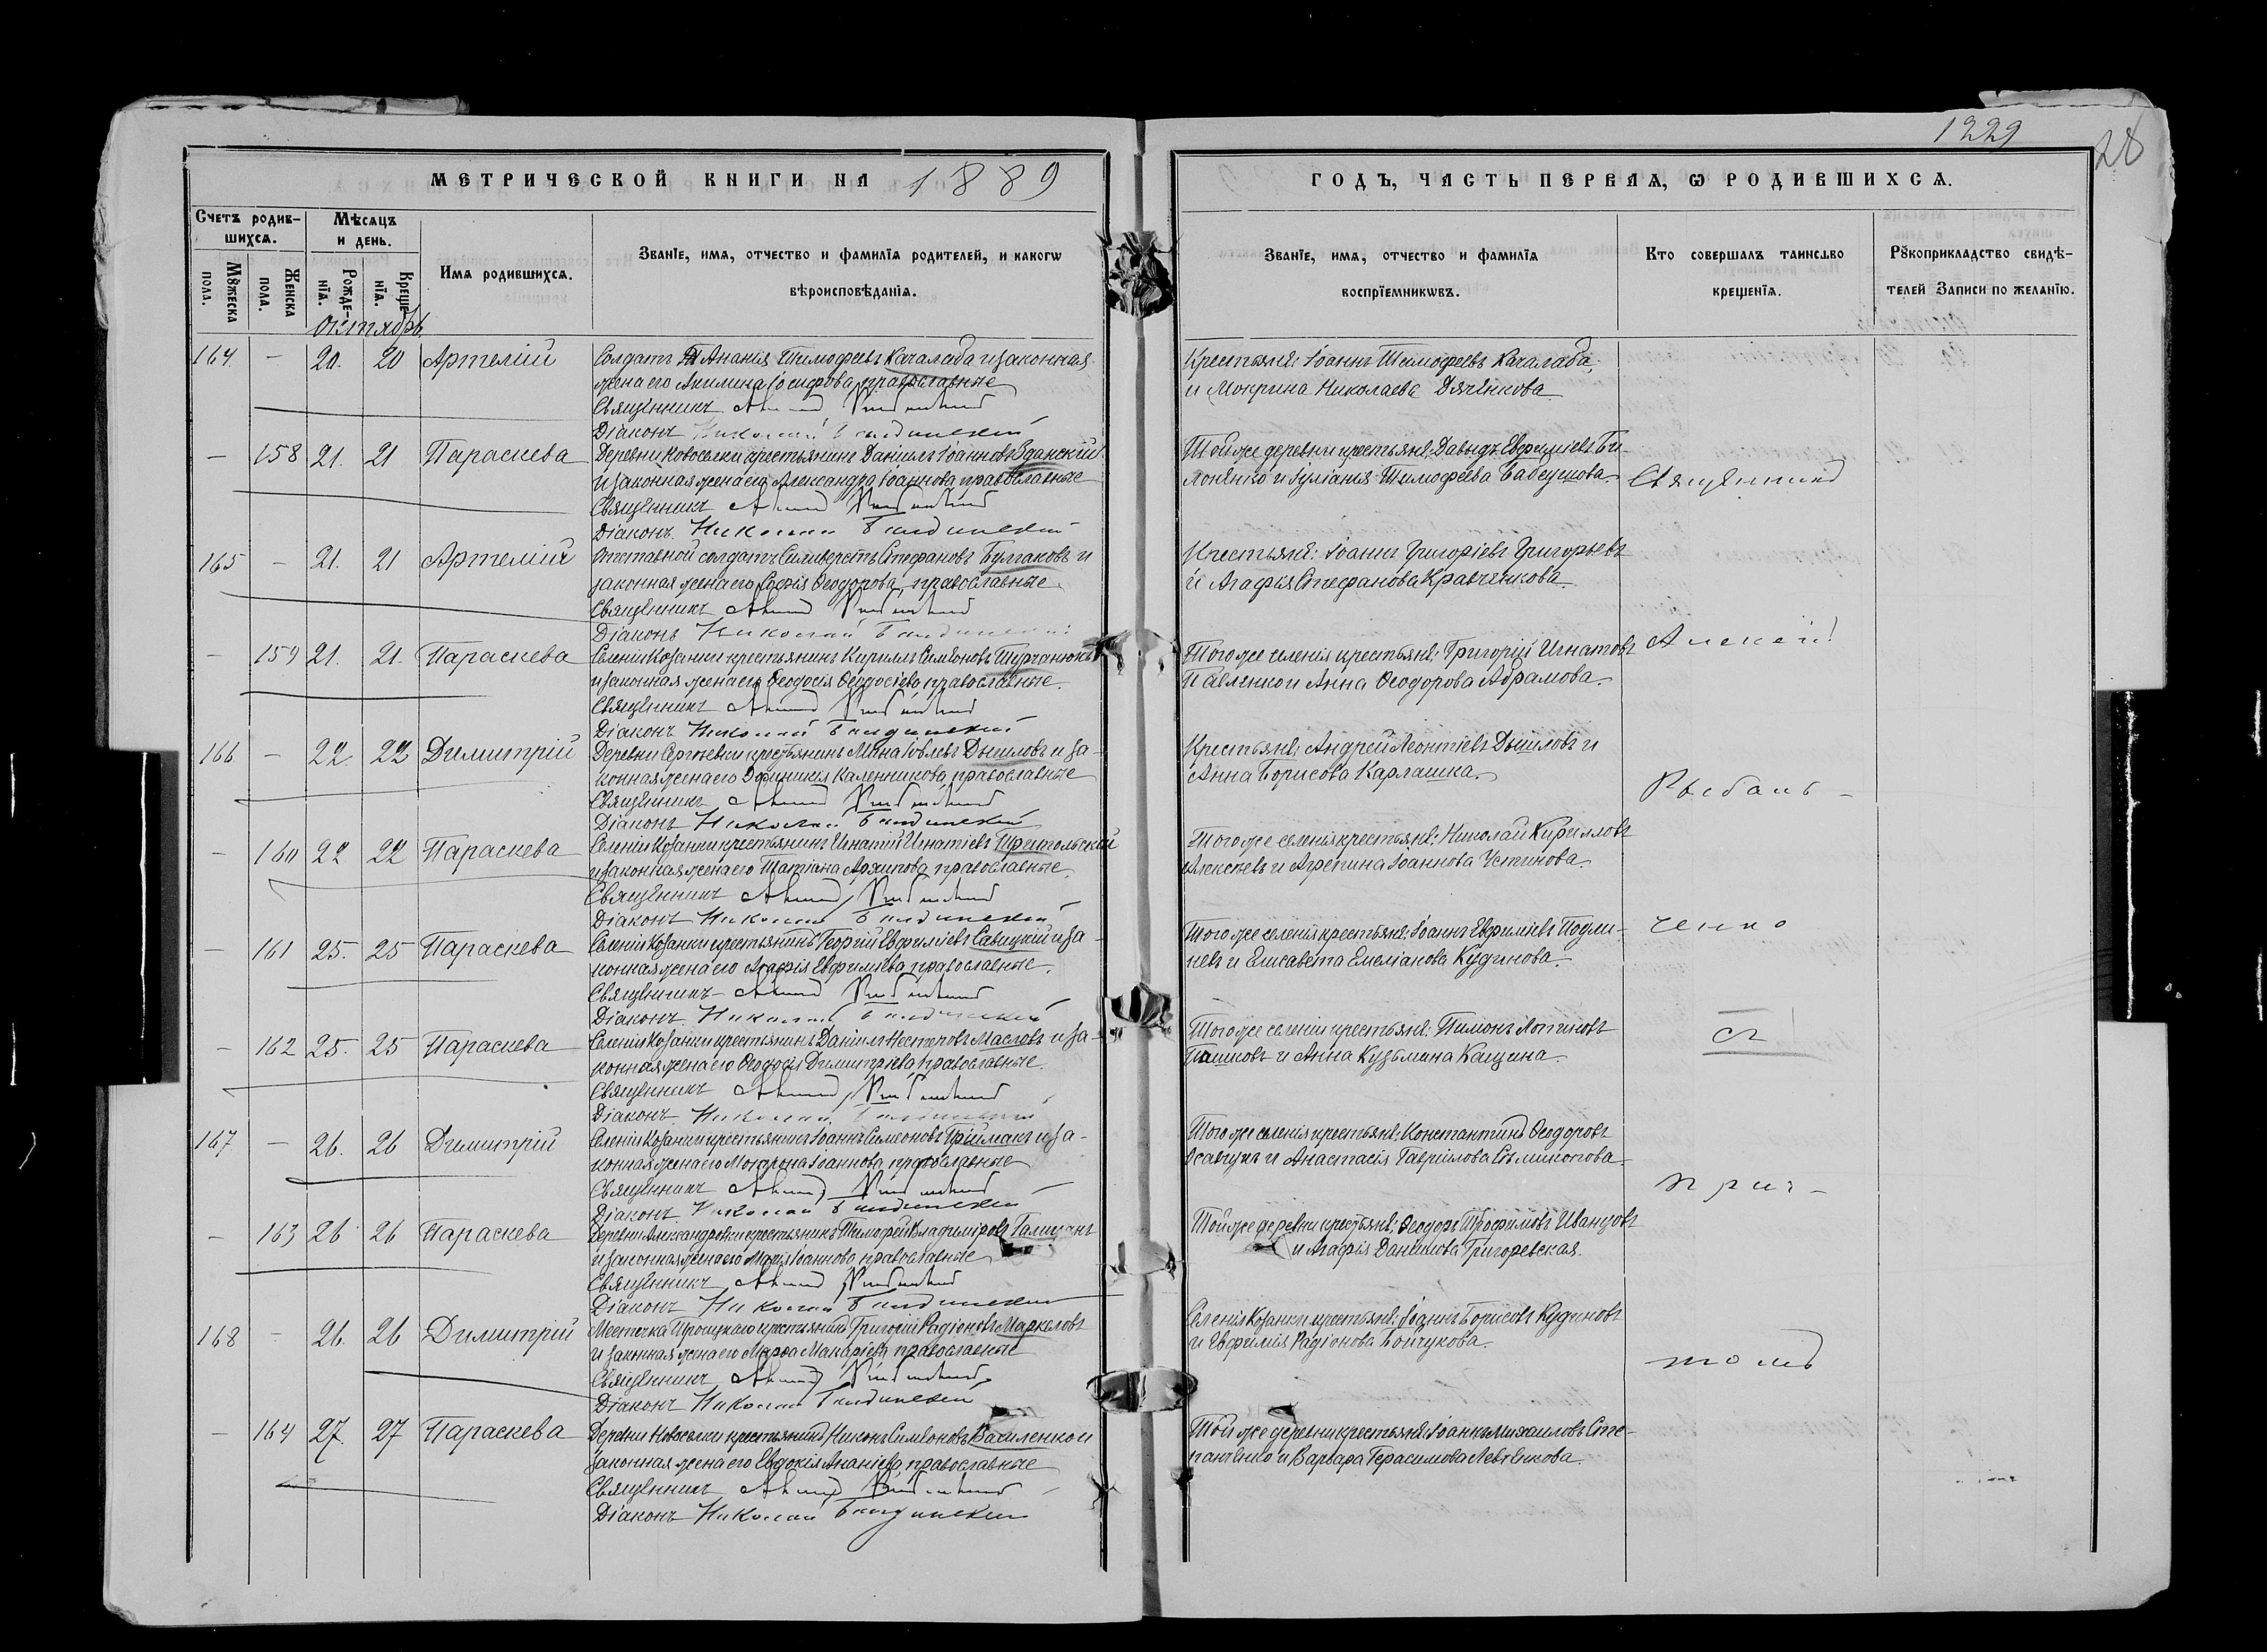 1229
28
МЕТРИЧЕСКОЙ КНИГИ НА 1889
ГОДЪ, ЧАСТЬ ПЕРВАЯ, Ѡ РОДИВШИХСЯ.
Счетъ родив-
шихся.
Мѣсяцъ
и день.
Мꙋжеска
пола.
Женска
пола.
Рожде-
нія.
Креще-
нія.
Имя родившихся.
Званіе, имя, отчество и фамилія родителей, и какогѡ
вѣроисповѣданія.
Званіе, имя, отчество и фамилія
воспріемникѡвъ.
Кто совершалъ таинство
крещенія.
Рꙋкоприкладство свидѣ-
телей записи по желанію.
Октябрь
164 - 20. 20 Артемій
Солдатъ Ананія Тимофеевъ Качалаба и законная
жена его Акилина Іосифова, православные
Священникъ
Діаконъ Николай
Крестьяне: Іоаннъ Тимофеевъ Качалаба,
и Мокрина Николаева Дяченкова
- 158 21. 21 Параскева
Деревни Новоселки крестьянинъ Даніилъ Іоанновъ Зданскій
и законная жена его Александра Іоаннова православные
Священникъ
Діаконъ Николай
Той же деревни крестьяне: Давидъ Евфиміевъ Би-
лоненко и Іуліанія Тимофеева Бабеушова
165 - 21. 21 Артемій
Отставной солдатъ Сильверстъ Стефановъ Булгаковъ и
законная жена его Софія Ѳеодорова, православные
Священникъ
Діаконъ Николай
Крестьяне: Іоаннъ Григоріевъ Григорьевъ
и Агафія Стефанова Кравченкова
- 159 21. 21. Параскева
Селенія Козанки крестьянинъ Кириллъ Симеоновъ Турчанюкъ
и законная жена его Ѳеодосія Ѳеодосіева, православные.
Священникъ
Діаконъ Николай
Того же селенія крестьяне: Григорій Игнатовъ
Павленко и Анна Ѳеодорова Абрамова
166 - 22. 22 Димитрій
Деревни Сергеевки крестьянинъ Мина Іовлевъ Дышловъ и за-
конная жена его Эфимія Каленникова, православные
Священникъ
Діаконъ Николай
Крестьяне: Андрей Леонтіевъ Дышловъ и
Анна Борисова Карлашка
- 160 22 22 Параскева
Селенія Козанки крестьянинъ Игнатій Игнатіевъ Трипольскій
и законная жена его Татіана Архипова православные
Священникъ
Діаконъ Николай
Того же селенія крестьяне: Николай Кирилловъ
Алексеевъ и Агрепина Іоаннова Устинова
- 161 25. 25 Параскева
Селенія Козанки крестьянинъ Георгій Евфиміевъ Савицкій и за-
конная жена его Агафія Евфиміева православные.
Священникъ
Діаконъ Николай
Того же селенія крестьяне: Іоаннъ Евфиміевъ Подли-
невъ и Елисавета Емеліанова Кудинова
- 162 25. 25 Параскева
Селенія Козанки крестьянинъ Даніилъ Нестеровъ Масловъ и за-
конная жена его Ѳеодосія Димитріева православные.
Священникъ
Діаконъ Николай
Того же селенія крестьяне: Пимонъ Логиновъ
Пашковъ и Анна Кузьмина Кащина
167 - 26. 26 Димитрій
Селенія Козанки крестьянинъ Іоаннъ Симеоновъ Прійманъ и за-
конная жена его Мотрона Іоаннова, православные
Священникъ
Діаконъ Николай
Того же селенія крестьяне: Константинъ Ѳеодоровъ
Осавукъ и Анастасія Гавріилова
- 163 26 26 Параскева
Деревни Александровки крестьянинъ Тимофей Владиміровъ Галицанъ
и законная жена его Марія Іоаннова православные
Священникъ
Діаконъ Николай
Той же деревни крестьяне: Ѳеодоръ Трофимовъ Иванцовъ
и Агафія Даніилова Григоревская.
168 - 26. 26 Димитрій
Местечка Троицкаго крестьянинъ Григорій Радіоновъ Маркеловъ
и законная жена его Марѳа Макаріева православные
Священникъ
Діаконъ Николай
Селенія Козанки крестьяне: Іоаннъ Борисовъ Кудиновъ
и Евфимія Радіонова Бойчукова.
- 164 27. 27 Параскева
Деревни Новоселки крестьянинъ Никонъ Симеоновъ Василенко и
законная жена его Евдокія Ананіева православные
Священникъ
Діаконъ Николай
Той же деревни крестьяне: Іоаннъ Михаиловъ Сте-
паненко и Варвара Герасимова Левченкова.
Священникъ
Алексей
Рыбаль-
ченко
съ
прич-
томъ